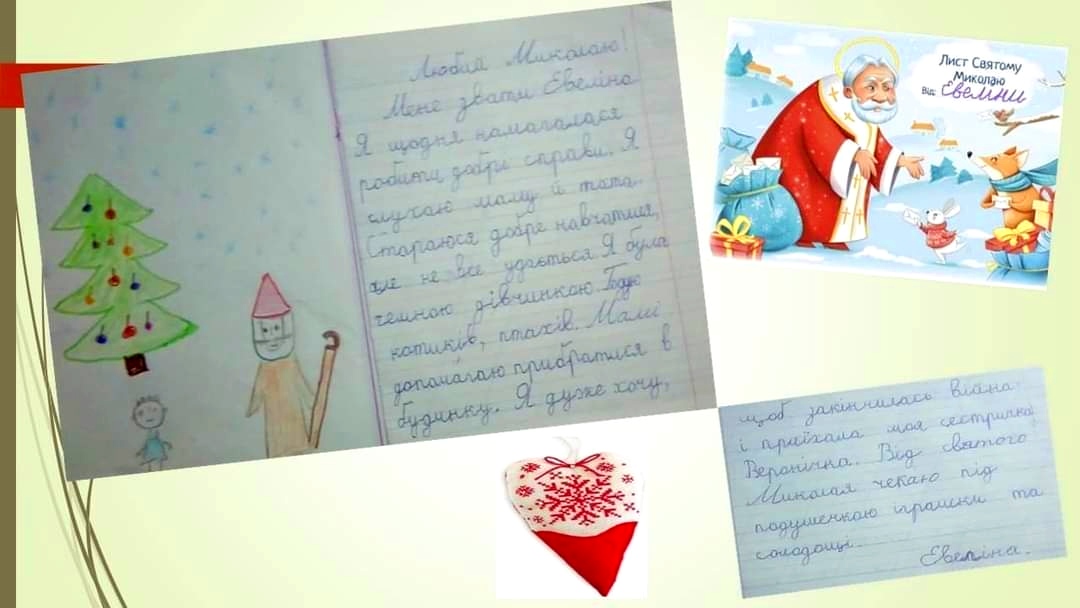 Любий Миколаю!
Мене звати Евеліна
Я щодня намагалася
робити добрі справи. Я
слухаю маму й тата.
Стараюся добре навчатися,
але не все удається. Я була
чемною дівчинкою. Годую
котиків, птахів. Мамі
допомагаю прибратися в
будинку. Я дуже хочу,
щоб закінчилась війна
і приїхала моя сестричка
Веронічка. Від святого
Миколая чекаю під
подушечкою іграшки та
солодощі.
Евеліна.
Лист Святому
Миколаю
Від: Евеліни